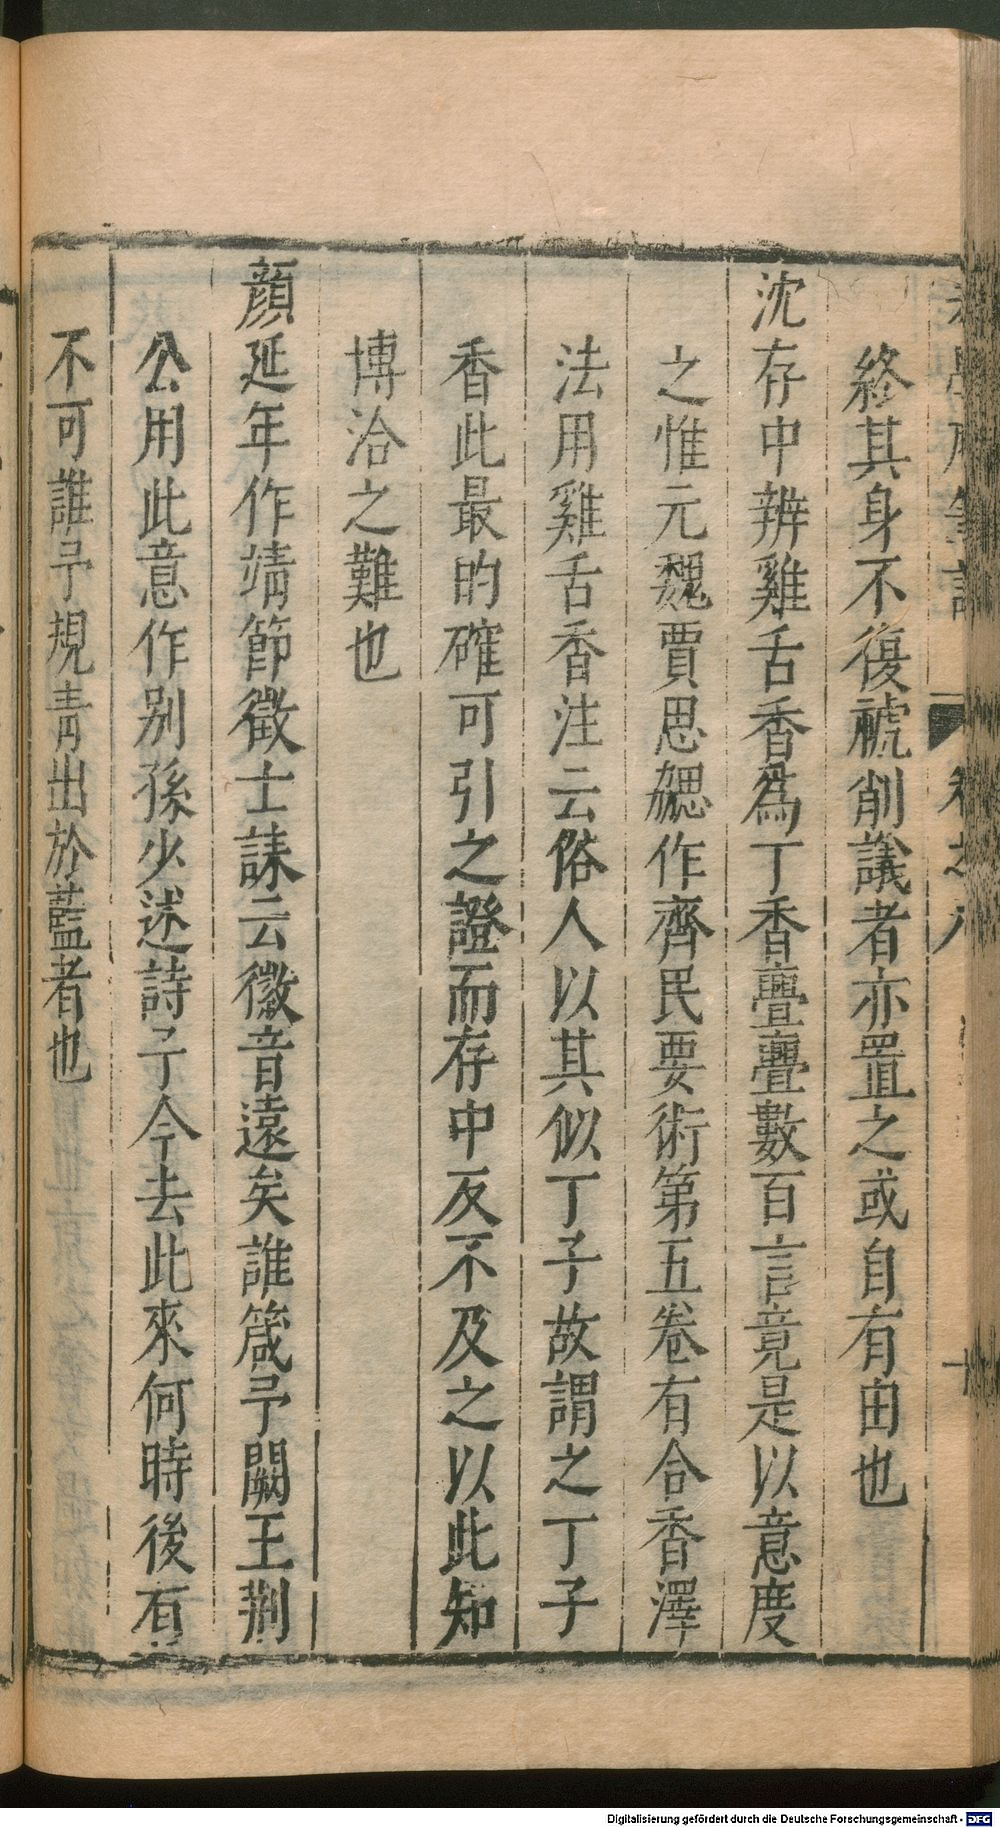 終其身不復褫削議者亦置之或自有由也
沈存中辨雞舌香為丁香亹亹數百言竟是以意度
之惟元魏賈思勰作齊民要術第五卷有合香澤
法用雞舌香注云俗人以其似丁子故謂之丁子
香此最的確可引之證而存中反不及之以此知
博洽之難也
顏延年作靖節徵士誄云徽音遠矣誰箴予闕王荆
公用此意作別孫少述詩子今去此來何時後有
不可誰予規青出於藍者也
Digitalisierung gefördert durch die Deutsche Forschungsgemeinschaft - DFG